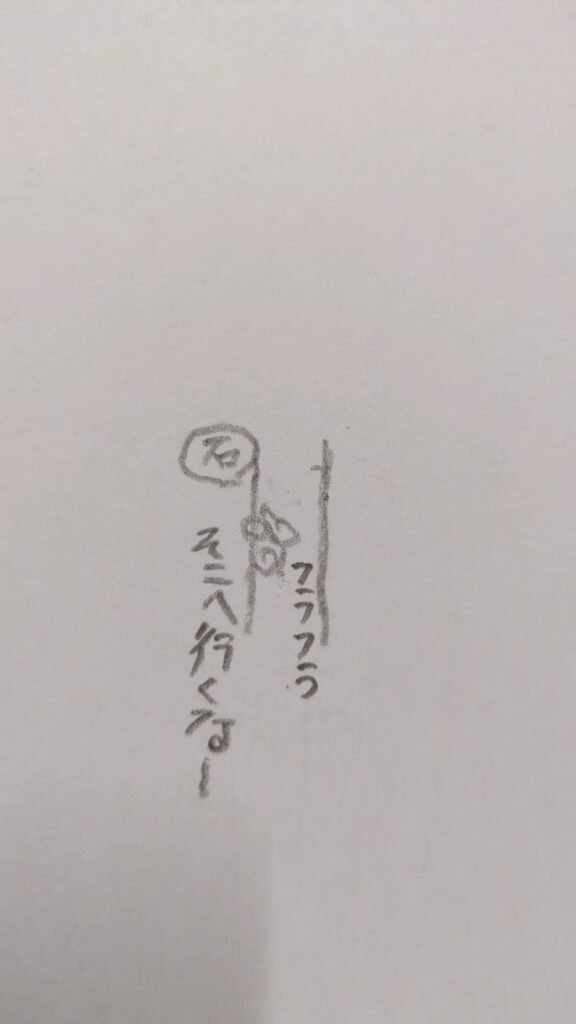 石
フラフラ
そこへ行くなー